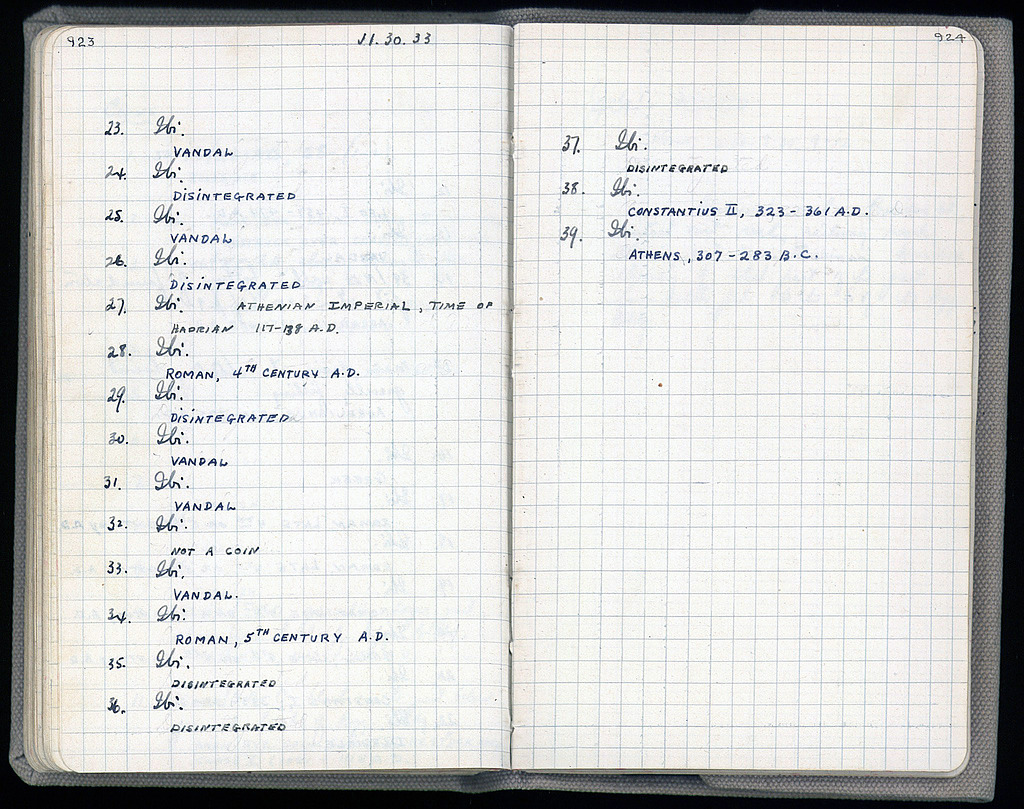 923
11.30.33
23. Ibi.
VANDAL
24. Ibi.
DISINTEGRATED
25. Ibi.
VANDAL
26. Ibi.
DISINTEGRATED
27. Ibi. ATHENIAN IMPERIAL, TIME OF
HADRIAN 117-138 A.D.
28. Ibi.
ROMAN, 4TH CENTURY A.D.
29. Ibi.
DISINTEGRATED
30. Ibi.
VANDAL
31. Ibi.
VANDAL
32. Ibi.
NOT A COIN
33. Ibi.
VANDAL.
34. Ibi.
ROMAN, 5TH CENTURY A.D.
35. Ibi.
DISINTEGRATED
36. Ibi.
DISINTEGRATED
924
37. Ibi.
DISINTEGRATED
38. Ibi.
CONSTANTIUS II, 323-361 A.D.
39. Ibi.
ATHENS, 307-283 B.C.